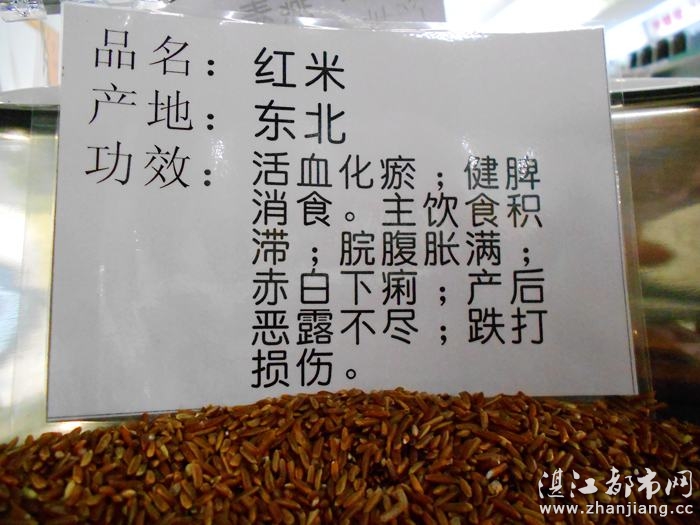 品名：红米
产地：东北
功效：活血化瘀；健脾
消食。主饮食积
滞；脘腹胀满；
赤白下痢；产后
恶露不尽；跌打
损伤。
湛江都市网
www.zhanjiang.cc